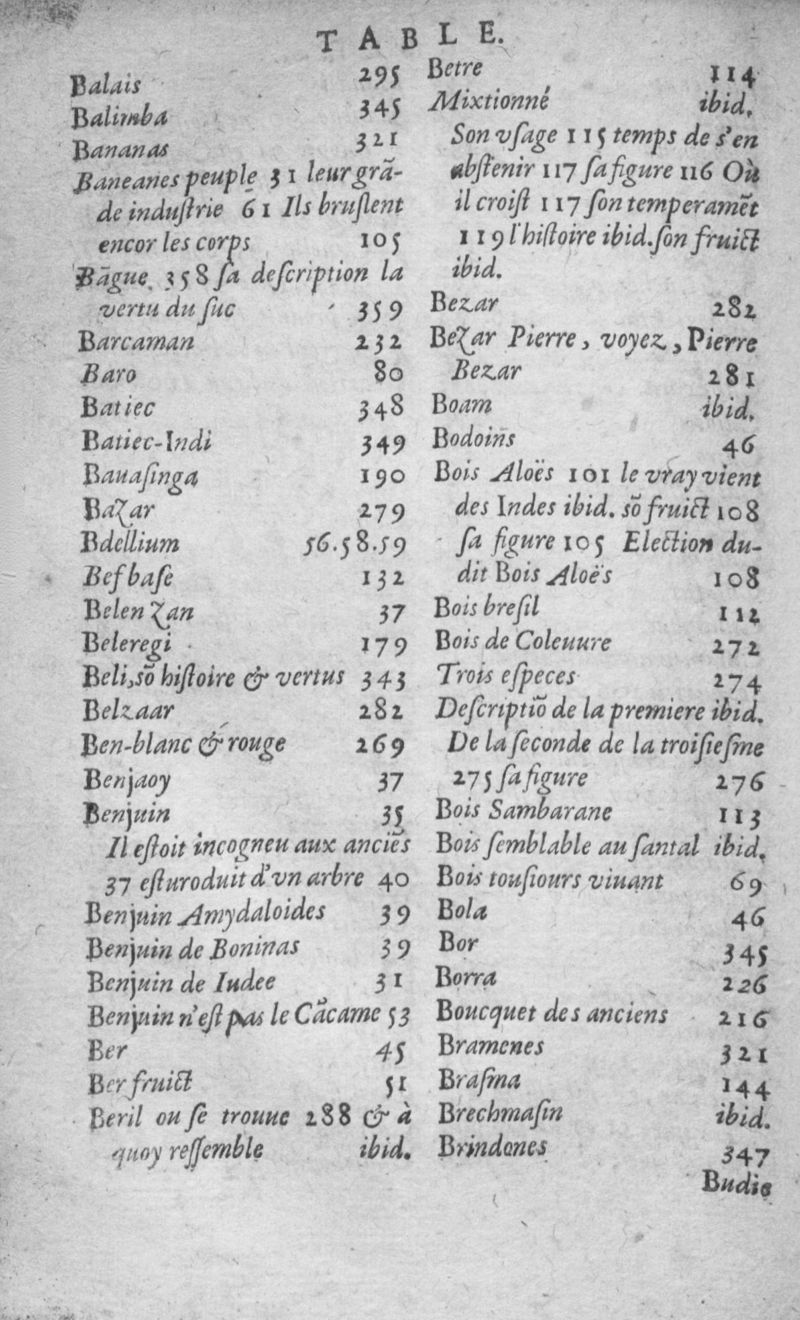 TABLE.
Balais 295
Balimba 345
Bananas 321
Baneanes peuple 31 leur grã-
de induſtrie 61 Ils bruſlent
encor les corps 105
Bãgue 358 ſa deſcription la
vertu du ſuc 359
Barcaman 232
Baro 80
Batiec 348
Batiec-Indi 349
Bauaſinga 190
Bazar 279
Bdellium 56.58.59
Befbaſe 132
Belenzan 37
Beleregi 179
Beli, sõ hiſtoire & vertus 343
Belzaar 282
Ben-blanc & rouge 269
Benjaoy 37
Benjuin 35
Il eſtoit incogneu aux anciẽs
37 eſt uroduit d'vn arbre 40
Benjuin Amydaloides 39
Benjuin de Boninas 39
Benjuin de Iudee 31
Benjuin n'eſt pas le Cãcame 53
Ber 45
Ber fruict 51
Beril ou ſe trouue 288 & à
quoy reſſemble ibid.
Betre 114
Mixtionné ibid.
Son vſage 115 temps de s'en
abſtenir 117 ſa figure 116 Où
il croiſt 117 ſon temperamẽt
119 l'hiſtoire ibid. ſon fruict
ibid.
Bezar 282
Bezar Pierre, voyez, Pierre
Bezar 281
Boam ibid.
Bodoins 46
Bois Aloës 101 le vray vient
des Indes ibid. sõ fruict 108
ſa figure 105 Election du-
dit Bois Aloës 108
Bois breſil 112
Bois de Coleuure 272
Trois eſpeces 274
Deſcriptiõ de la premiere ibid.
De la ſeconde de la troiſieſme
275 ſa figure 276
Bois Sambarane 113
Bois ſemblable au ſantal ibid.
Bois touſiours viuant 69
Bola 46
Bor 345
Borra 226
Boucquet des anciens 216
Bramenes 321
Braſma 144
Brechmaſin ibid.
Brindones 347
Budie